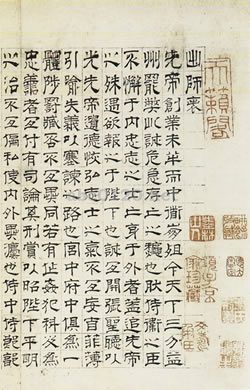 天籟閣
出師表
先帝創業未半而中衜崩殂今天下三分益
州罷獘此誠危急存亡之秋也然侍衛之臣
不懈于內忠志之士亡身于外者蓋追先帝
之殊遇欲報之于陛下也誠宜開張聖聽以
光先帝遺德恢弘志士之氣不宜妄自菲薄
引喻失義以塞諫之路也宮中府中俱為一
體陟罰臧否不宜異同若有作姦犯科及為
忠善者宜付有司論其刑賞以昭陛下平明
之治不宜偏私使內外異灋也侍中侍郎郭